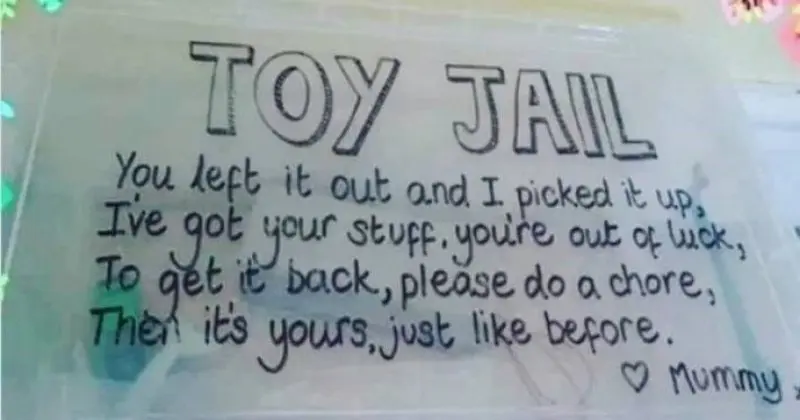 TOY JAIL
You left it out and I picked it up,
I've got your stuff, you're out of luck,
To get it back, please do a chore,
Then it's yours, just like before.
♡ Mummy